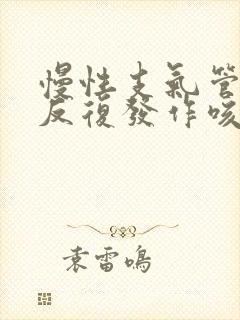 慢性支氣管
反復發作咳
袁雷鳴